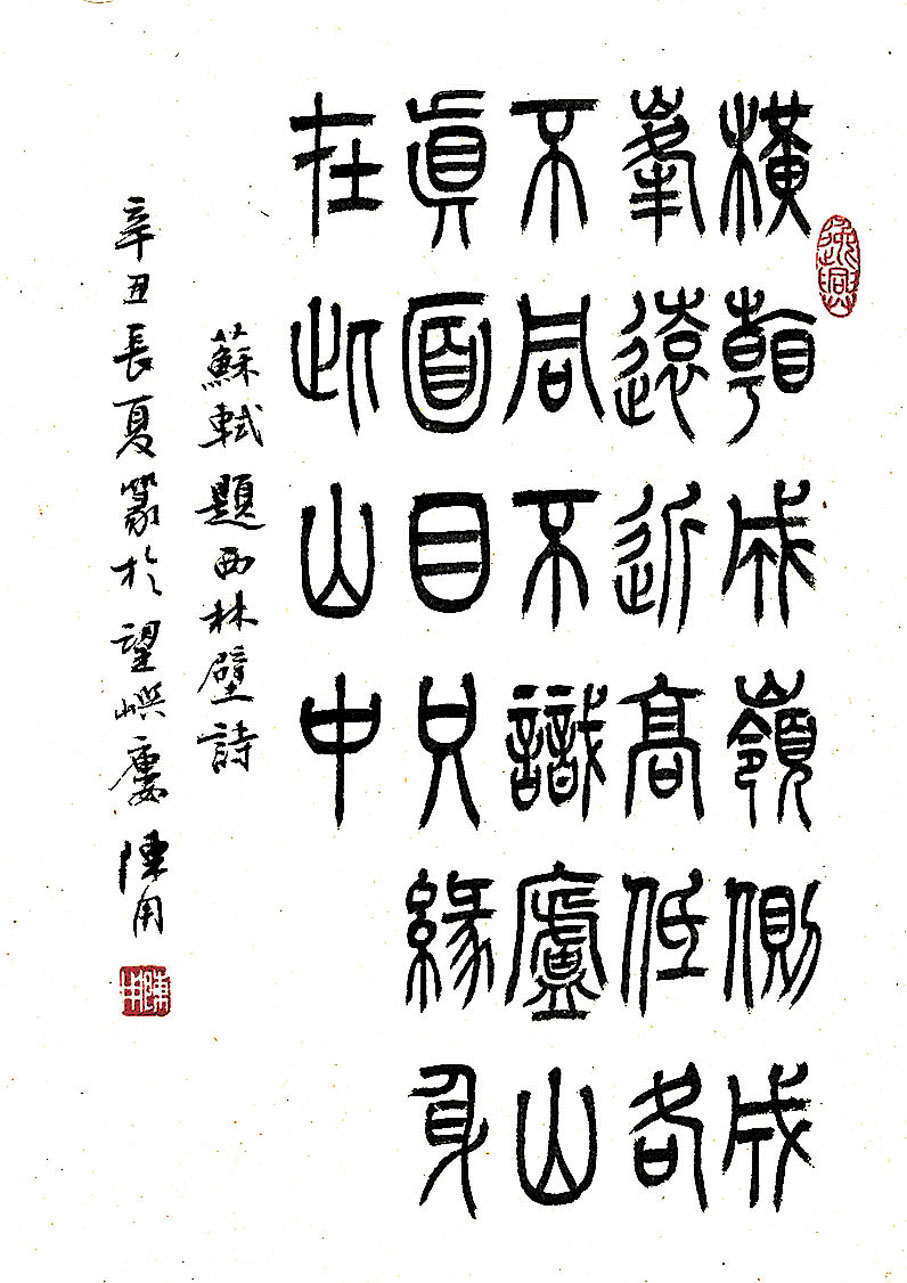 逸興
橫看成嶺側成
峯遠近高低各
不同不識廬山
眞面目只緣身
在此山中
蘇軾題西林壁詩
辛丑長夏篆於望嶼廔陳用
陳用